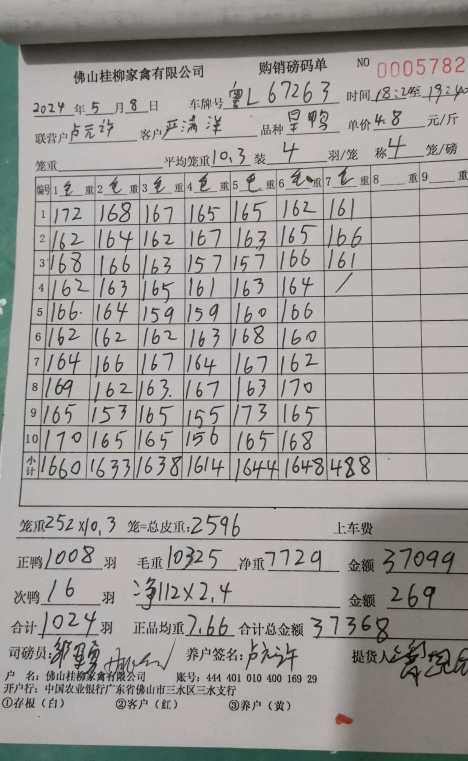 佛山桂柳家禽有限公司 购销磅码单 NO 0005782
2024年5月8日 车牌号 粤L67263 时间
联营户 卢元许 客户 严满洋 品种 旱鸭 单价 4.8 元/斤
笼重 平均笼重 10.3 装 4 羽/笼 称 4 笼/磅
编号 1 重 2 重 3 重 4 重 5 重 6 重 7 重 8 重 9 重
1 172 168 167 165 165 162 161
2 162 164 162 167 163 165 166
3 168 166 163 157 157 166 161
4 162 163 165 161 163 164 /
5 166 164 159 159 160 166
6 162 162 162 163 168 160
7 164 166 167 164 167 162
8 169 162 163 167 163 170
9 165 153 165 155 173 165
10 170 165 165 156 165 168
小计 1660 1633 1638 1614 1644 1648 488
笼重 252x10.3 笼=总皮重: 2596 上车费
正鸭 1008 羽 毛重 10325 净重 7729 金额 37099
次鸭 16 羽 净112x2.4 金额 269
合计 1024 羽 正品均重 7.66 合计总金额 37368
司磅员: 养户签名: 卢元许 提货人
户 名: 佛山桂柳家禽有限公司 账号: 444 401 010 400 169 29
开户行: 中国农业银行广东省佛山市三水区三水支行
①存根（白） ②客户（红） ③养户（黄）